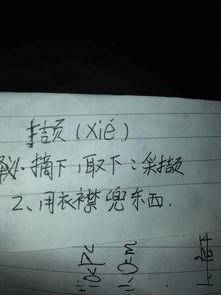 撷(xié)
义1.摘下,取下:采撷
2、用衣襟兜东西.